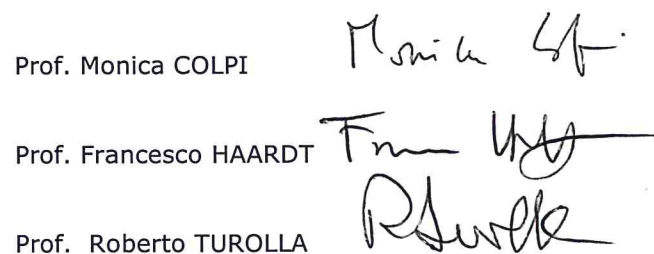 Prof. Monica COLPI Monica
Prof. Francesco HAARDT
Prof. Roberto TUROLLA RTurolla